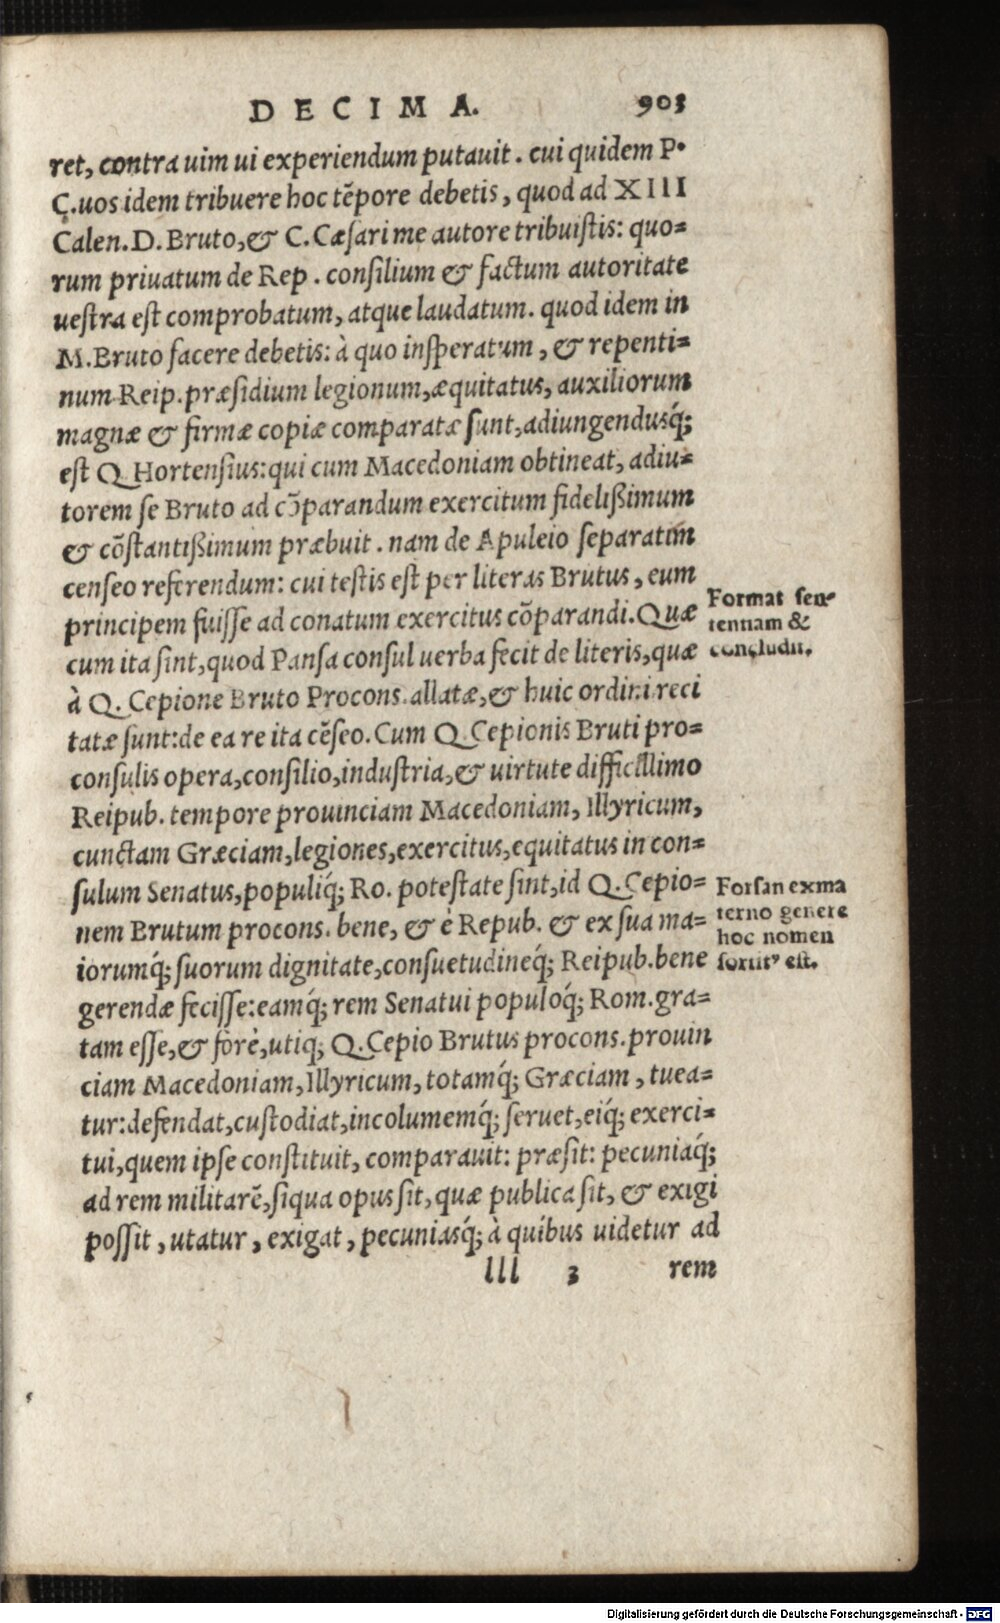 DECIMA. 903
ret, contra uim ui experiendum putauit. cui quidem P.
C. uos idem tribuere hoc tẽpore debetis, quod ad XIII
Calen. D. Bruto, & C. Cæsari me autore tribuistis: quo=
rum priuatum de Rep. consilium & factum autoritate
uestra est comprobatum, atque laudatum. quod idem in
M. Bruto facere debetis: à quo insperatum, & repenti=
num Reip. præsidium legionum, æquitatus, auxiliorum
magnæ & firmæ copiæ comparatæ sunt, adiungendusq́;
est Q. Hortensius: qui cum Macedoniam obtineat, adiu=
torem se Bruto ad cõparandum exercitum fidelißimum
& cõstantißimum præbuit. nam de Apuleio separatim
censeo referendum: cui testis est per literas Brutus, eum
principem fuisse ad conatum exercitus cõparandi. Quæ
cum ita sint, quod Pansa consul uerba fecit de literis, quæ
à Q. Cepione Bruto Procons. allatæ, & huic ordini reci
tatæ sunt: de ea re ita cẽseo. Cum Q. Cepionis Bruti pro=
consulis opera, consilio, industria, & uirtute difficillimo
Reipub. tempore prouinciam Macedoniam, Illyricum,
cunctam Græciam, legiones, exercitus, equitatus in con=
sulum Senatus, populiq́; Ro. potestate sint, id Q. Cepio=
nem Brutum procons. bene, & è Repub. & ex sua ma=
iorumq́; suorum dignitate, consuetudineq́; Reipub. bene
gerendæ fecisse: eamq́; rem Senatui populoq́; Rom. gra=
tam esse, & forè, utiq; Q. Cepio Brutus procons. prouin
ciam Macedoniam, Illyricum, totamq́; Græciam, tuea=
tur: defendat, custodiat, incolumemq́; seruet, eiq́; exerci=
tui, quem ipse constituit, comparauit: præsit: pecuniaq́;
ad rem militarẽ, siqua opus sit, quæ publica sit, & exigi
possit, utatur, exigat, pecuniasq́; à quibus uidetur ad
lll 3 rem
Format sen
tentiam &
concludit.
Forsan ex ma
terno genere
hoc nomen
sortit' est.
Digitalisierung gefördert durch die Deutsche Forschungsgemeinschaft - DFG